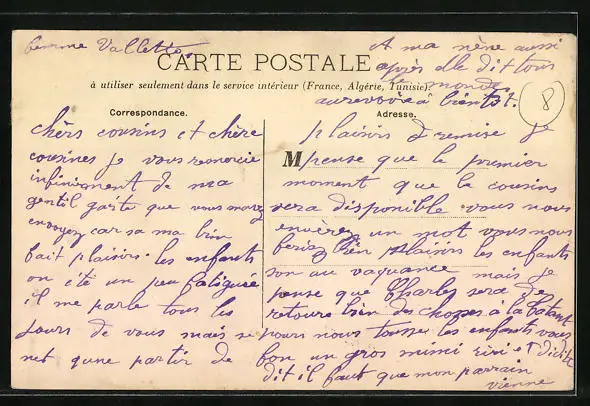 femme Valletto
CARTE POSTALE
à utiliser seulement dans le service intérieur (France, Algérie, Tunisie).
A ma nène aussi
après elle dit tous
le monde
au revoire à bientot.
8
Correspondance.
Adresse.
M
chèrs cousins et chère
cousines je vous remercie
infiniment de ma
gentil carte que vous mavez
envoyez car sa ma bien
fait plaisirs. les enfants
on été un peu fatiguée
il me parle tous les
jours de vous mais se
net qune partir de
plaisirs dremise je
pense que le premier
moment que le cousins
vera disponible vous nous
envèrez un mot vous nous
ferez bien plaisirs les enfants
son au vaquance mais je
pense que Charles sera de
retoure bien des choses à la
pours nous tousse les enfants vous
fon un gros mimi riri et didite
dit il faut que mon parrain
vienne